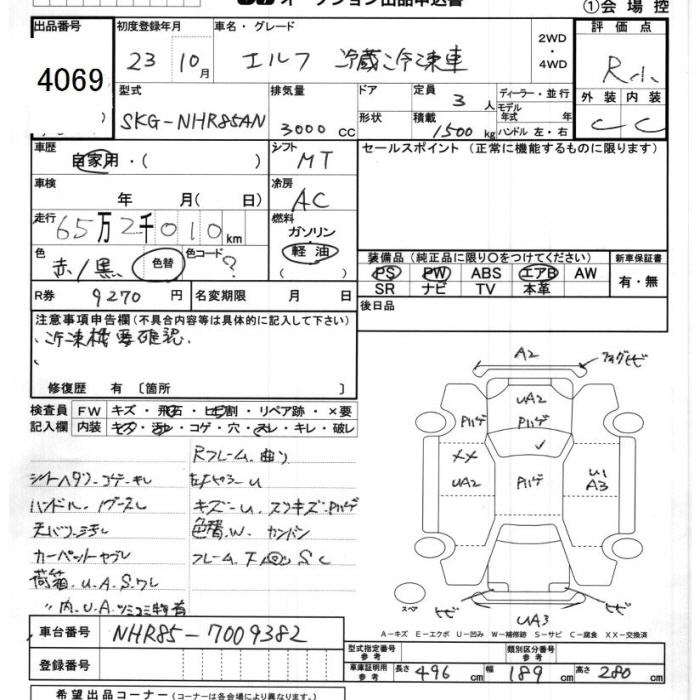 オークション出品申込書
①会場控
出品番号 初度登録年月 車名・グレード 評価点
4069 23 10月 エルフ 冷蔵冷凍車 2WD・4WD R
型式 排気量 ドア 定員 3人 ディーラー・並行 外装 内装
SKG-NHR85AN 3000cc 形状 積載 1500kg モデル年式 年 ハンドル 左・右 C C
車歴 自家用・( ) シフト MT セールスポイント (正常に機能するものに限ります)
車検 年 月( 日) 冷房 AC
走行 65万2千010km 燃料 ガソリン 軽油
色 赤/黒 色替 色コード ?
装備品 (純正品に限り○をつけてください) 新車保証書
PS PW ABS エアB AW 有・無
SR ナビ TV 本革
R券 9270円 名変期限 月 日 後日品
注意事項申告欄 (不具合内容等は具体的に記入して下さい)
冷凍機要確認
修復歴 有 〔箇所 〕
検査員記入欄 FW キズ・飛石・ヒビ割・リペア跡・×要
内装 キズ・汚れ・コゲ・穴・スレ・キレ・破レ
Rフレーム曲り
シートヘタリ・コゲ・キレ
ハンドル
キズ・U・スリキズ・Pハゲ
天バリ汚れ 色替W.
カーペットヤブレ フレーム下回りSC
荷箱.U.A.S.ワレ
〃内.U.A.
A2
UA2
Pハゲ Pハゲ
XX
UA2 Pハゲ U1
A3
スペア ヒビ ヒビ
UA3
A−キズ E−エクボ U−凹み W−補修跡 S−サビ C−腐食 XX−交換済
車台番号 NHR85-7009382
登録番号
型式指定番号 参考 類別区分番号 参考
車庫証明用 参考 長さ 496cm 幅 189cm 高さ 280cm
希望出品コーナー (コーナーは各会場により異なります)